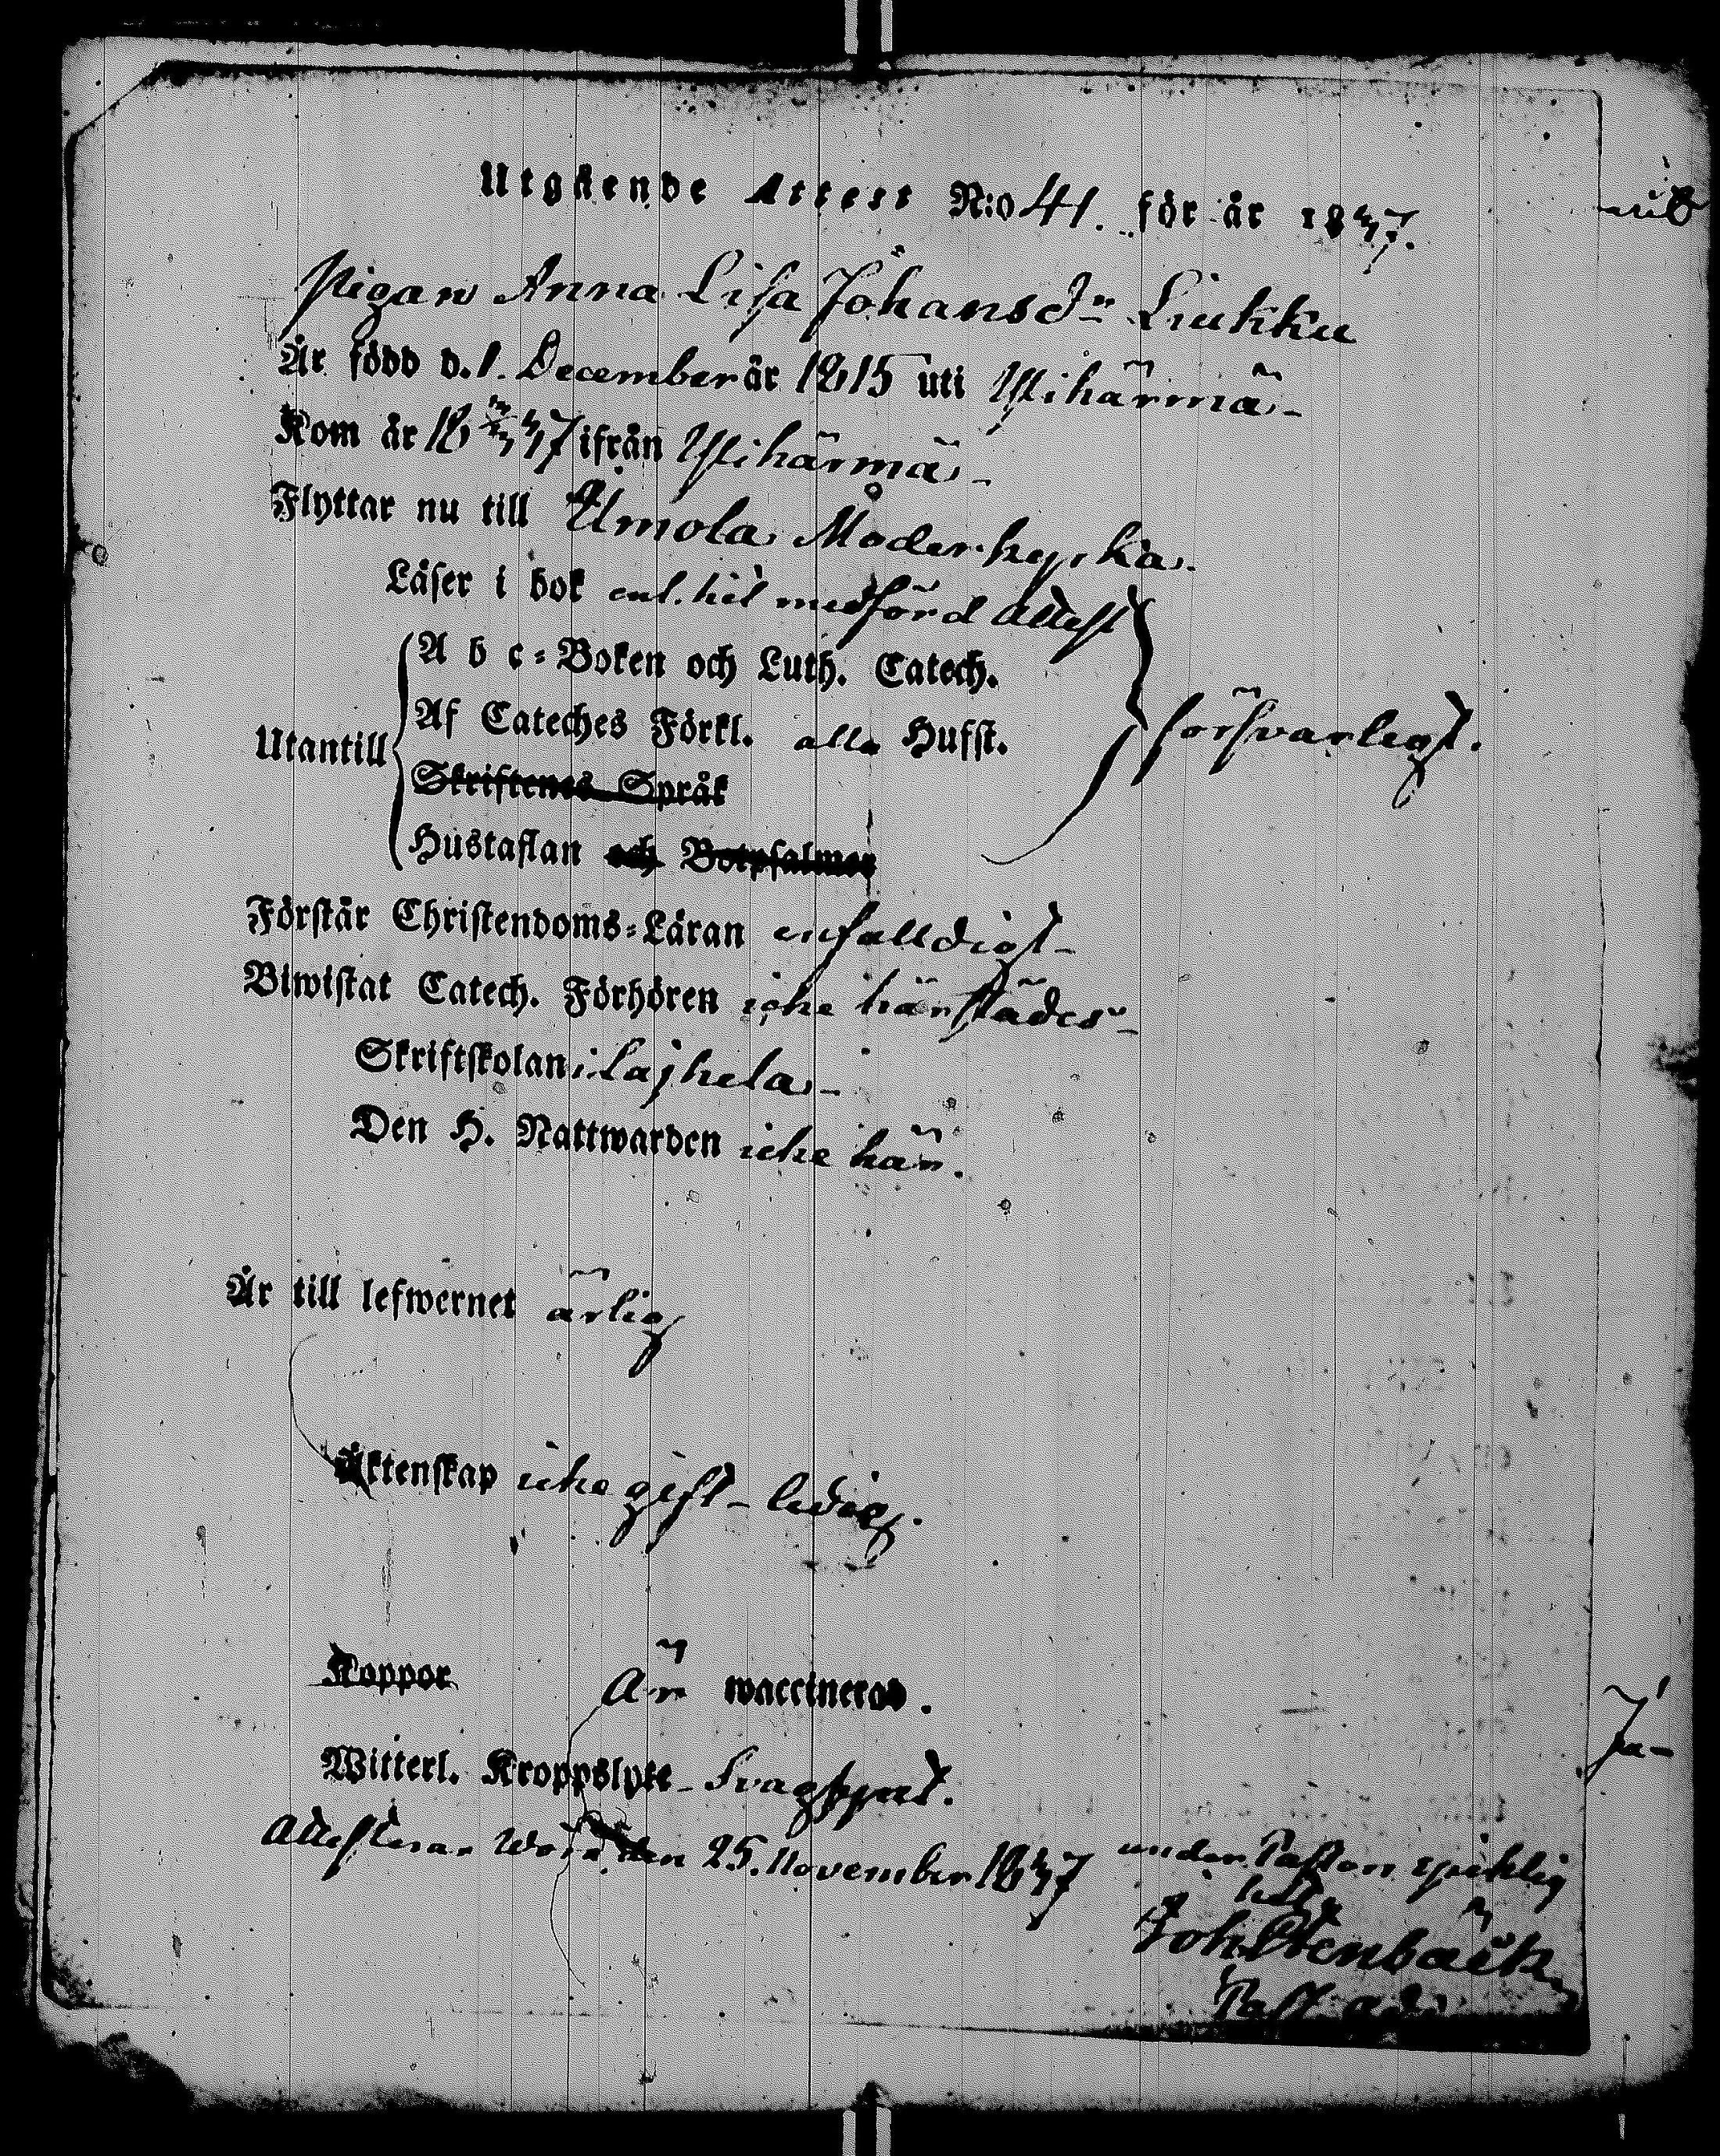 Utgående Attest N:o 41. för år 1847.
Pigan Anna Lisa Johansdr Liukku
Är född d. 1. December år 1815 uti Ylihärmä
Kom år 1847 ifrån Ylihärmä
Flyttar nu till Umola Moderkyrka.
Läser i bok enl. hit medförd attest
A b c=Boken och Luth. Catech.
Utantill Af Cateches Förkl. alla Hufst. försvarligt.
Skriftenes Språk
Hustaflan och Botpsalmer
Förstår Christendoms=Läran enfalldigt
Biwistat Catech. Förhören icke härstädes
Skriftskolan i Lajhela
Den H. Nattwarden icke här.
Är till lefwernet ärlig
Äktenskap icke gift - ledig.
Koppor Är waccinerad.
Witterl. Kroppslyte - Svagsynt.
Attesterar Wörå den 25. November 1847 under Pastors
Joh Stenbäck
Past. adj
Ja-